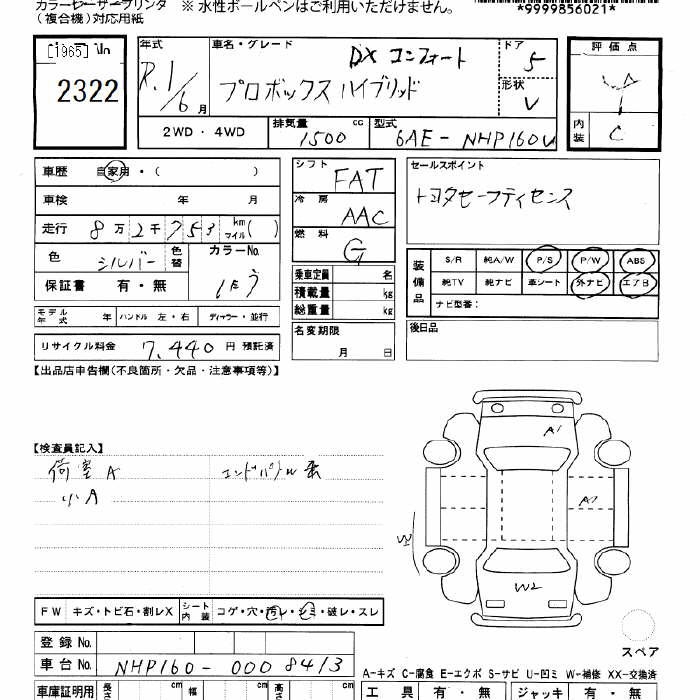 カラーレーザープリンタ ※ 水性ボールペンはご利用いただけません。
(複合機)対応用紙
*9999856021*
[1965]
2322
年式 車名・グレード ドア 評価点
DX コンフォート 5
R.1/6 月 プロボックス ハイブリッド 形状 V
2WD・4WD 排気量 1500 cc 型式 6AE-NHP160U 内装 C
車歴 自家用・( )
車検 年 月
走行 8万2千753 km マイル( )
色 シルバー 色替 カラーNo. 1E7
保証書 有・無
モデル年式 年 ハンドル 左・右 ディーラー・並行
リサイクル料金 7,440 円 預託済
シフト FAT
冷房 AAC
燃料 G
乗車定員 名
積載量 kg
総重量 kg
名変期限
月 日
セールスポイント
トヨタセーフティセンス
装備品 S/R 純A/W P/S P/W ABS
純TV 純ナビ 革シート 外ナビ エアB
ナビ型番:
後日品
【出品店申告欄(不良箇所・欠品・注意事項等)】
【検査員記入】
荷室 A エンドパネル
小A
A1
A1
W2
FW キズ・トビ石・割レX シート内装 コゲ・穴・汚レ・シミ・破レ・スレ
登録 No.
車台 No. NHP160-0008413
車庫証明用 長さ cm 幅 cm 高さ cm
スペア
A-キズ C-腐食 E-エクボ S-サビ U-凹ミ W-補修 XX-交換済
工具 有・無 ジャッキ 有・無